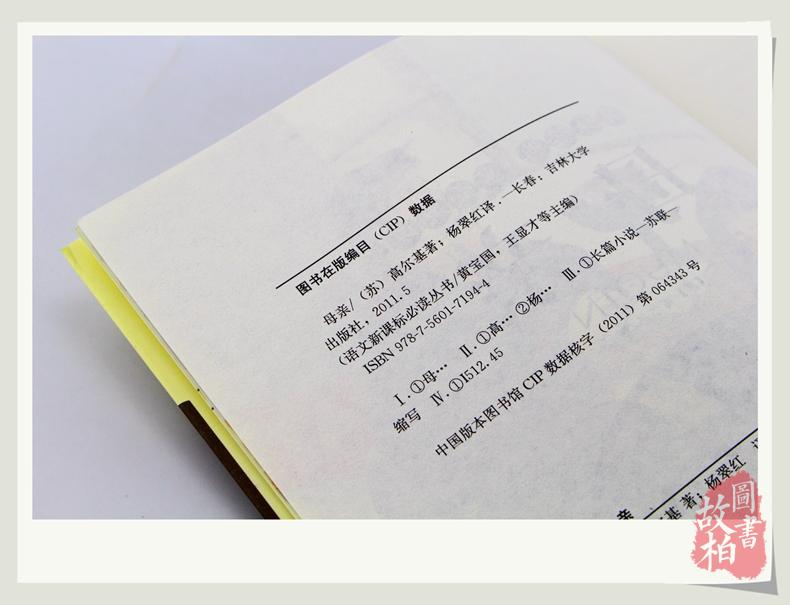 图书在版编目（CIP）数据
母亲/（苏）高尔基著；杨翠红译．—长春：吉林大学
出版社，2011.5
（语文新课标必读丛书/黄宝国，王显才等主编）
ISBN 978-7-5601-7194-4
Ⅰ．①母… Ⅱ．①高… ②杨… Ⅲ．①长篇小说—苏联—
缩写 Ⅳ．①I512.45
中国版本图书馆 CIP 数据核字（2011）第 064343 号
亲
基著；杨翠红
圖書
故柏